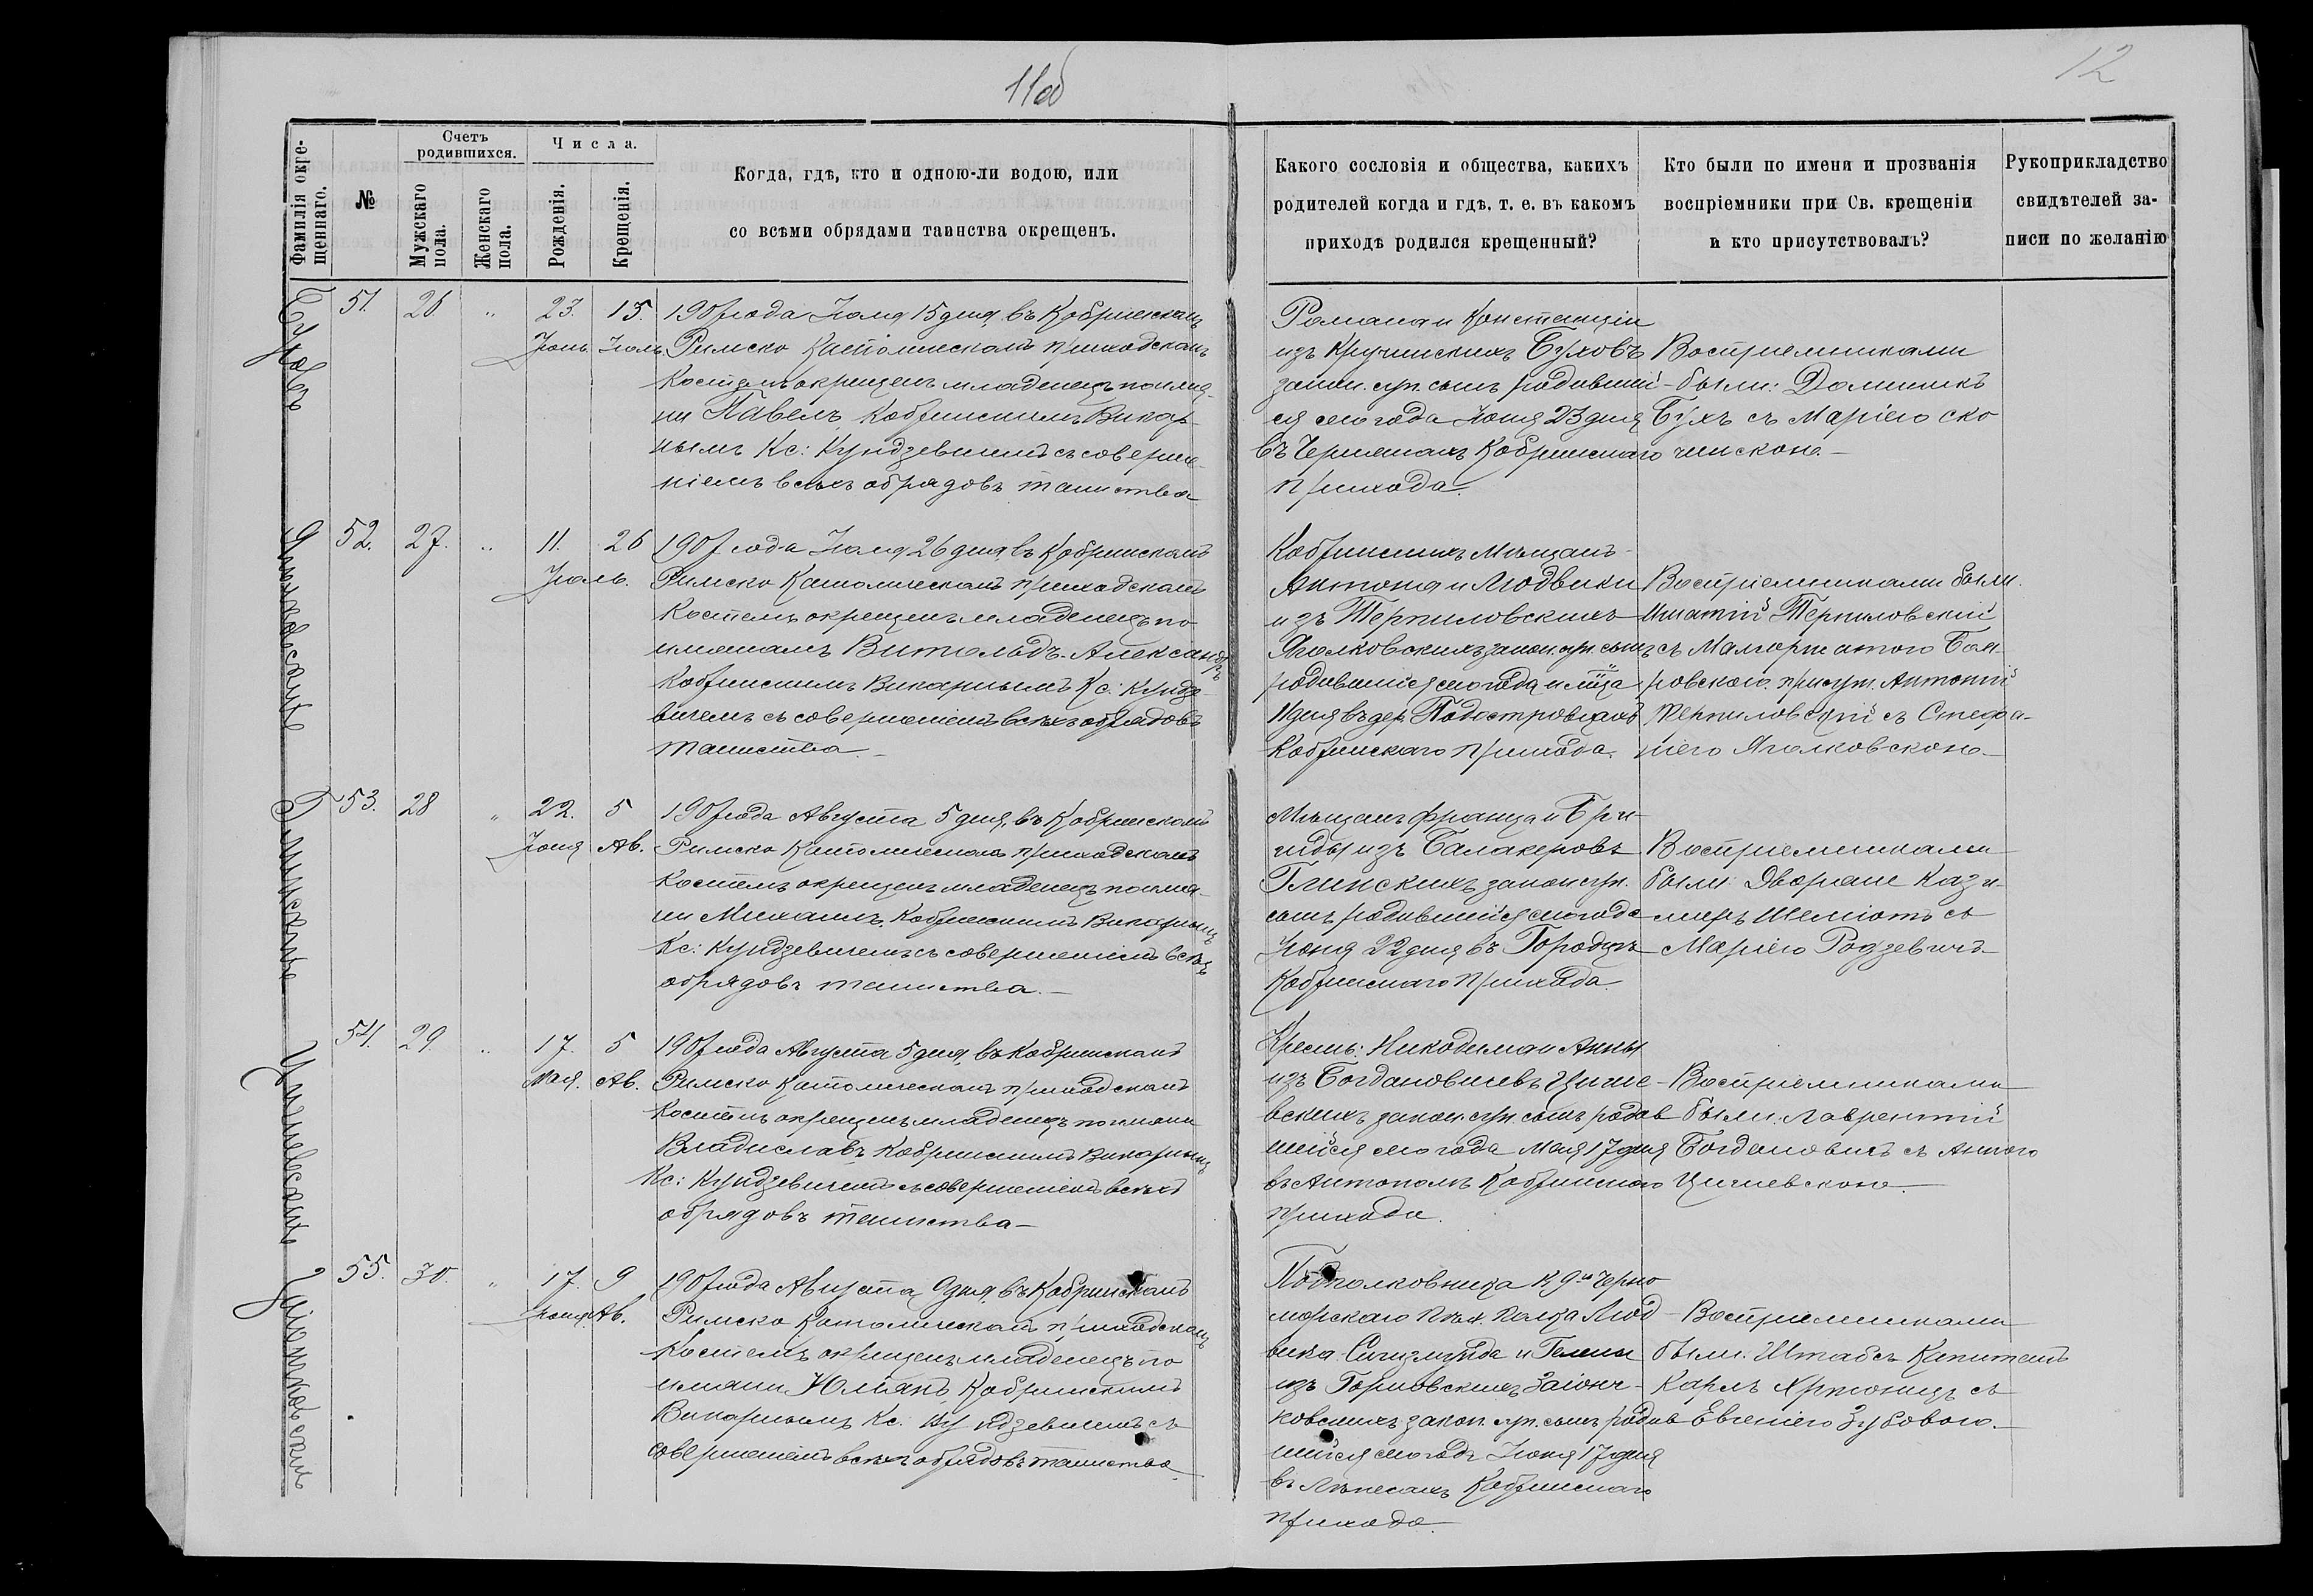 11об
12
Фамилія окре-
щеннаго.
№
Счетъ
родившихся.
Мужскаго
пола.
Женскаго
пола.
Числа.
Рожденія.
Крещенія.
Когда, гдѣ, кто и одною-ли водою, или
со всѣми обрядами таинства окрещенъ.
Какого сословія и общества, какихъ
родителей когда и гдѣ, т. е. въ какомъ
приходѣ родился крещенный?
Кто были по имени и прозванія
воспріемники при Св. крещеніи
и кто присутствовалъ?
Рукоприкладство
свидѣтелей за-
писи по желанію
Буховъ
51. 26 „ 23. 15.
Іюнь Іюль
1907 года Іюля 15 дня, въ Кобринскомъ
Римско Католическомъ приходскомъ
Костелѣ окрещенъ младенецъ по име-
ни Павелъ, Кобринскимъ Викар-
нымъ Кс: Кундзевичемъ съ соверше-
ніемъ всѣхъ обрядовъ таинства
Романа и Констанціи
изъ Кручинскихъ Буховъ
закон. суп. сынъ родивший-
ся сего года Іюня 23 дня
въ Кобринскаго
прихода.
Воспріемниками
были: Доминикъ
Бухъ съ Маріею Ско
чинскою.
Яголковскій
52. 27. „ 11. 26
Іюль.
1907 года Іюля 26 дня, въ Кобринскомъ
Римско Католическомъ приходскомъ
Костелѣ окрещенъ младенецъ по
именамъ Витольдъ-Александръ
Кобринскимъ Викарнымъ Кс: Кундзе-
вичемъ съ совершеніемъ всѣхъ обрядовъ
таинства.
Кобринскихъ Мѣщанъ
Антона и Людвики
изъ Терпиловскихъ
Яголковскихъ закон. суп. сынъ
родившійся сего года Іюля
11 дня въ дер.
Кобринскаго прихода.
Воспріемниками были
Игнатій Терпиловскій
съ Малгоржатою
присут. Антоній
Терпиловскій съ Стефа-
ніею Яголковскою
Глинскій
53. 28 „ 22. 5
Іюня Ав.
1907 года Августа 5 дня, въ Кобринскомъ
Римско Католическомъ приходскомъ
Костелѣ окрещенъ младенецъ по име-
ни Михаилъ, Кобринскимъ Викарнымъ
Кс: Кундзевичемъ съ совершеніемъ всѣхъ
обрядовъ таинства.
Мѣщанъ Франца и Бри-
гиды изъ Балакеровъ
Глинскихъ закон. суп.
сынъ родившійся сего года
Іюня 22 дня въ Городцѣ
Кобринскаго прихода
Воспріемниками
были: Дворяне Кази-
миръ Шеміотъ съ
Маріею Родзевичъ
54. 29. „ 17. 5
Мая. Ав.
1907 года Августа 5 дня, въ Кобринскомъ
Римско Католическомъ приходскомъ
Костелѣ окрещенъ младенецъ по имени
Владиславъ, Кобринскимъ Викарнымъ
Кс: Кундзевичемъ съ совершеніемъ всѣхъ
обрядовъ таинства
Крестъ: Никодима и Анны
изъ Богдановичевъ
закон. суп. сынъ родив
шійся сего года Мая 17 дня
въ Антополѣ Кобринскаго
прихода.
Воспріемниками
были: Лаврентій
Богдановичъ съ Анною
Заіончковскій
55. 30. „ 17. 9
Іюня Ав.
1907 года Августа 9 дня, въ Кобринскомъ
Римско Католическомъ приходскомъ
Костелѣ окрещенъ младенецъ по
имени Юліанъ, Кобринскимъ
Викарнымъ Кс: Кундзевичемъ съ
совершеніемъ всѣхъ обрядовъ таинства
Подполковника Черно
морскаго полка Люд-
вика Сигизмунда и
изъ Горновскихъ Заіонч-
ковскихъ закон. суп. сынъ родив
шійся сего года Іюня 17 дня
въ Кобринскаго
прихода.
Воспріемниками
были: Штабсъ Капитанъ
Карлъ съ
Евгеніею Зубовою.